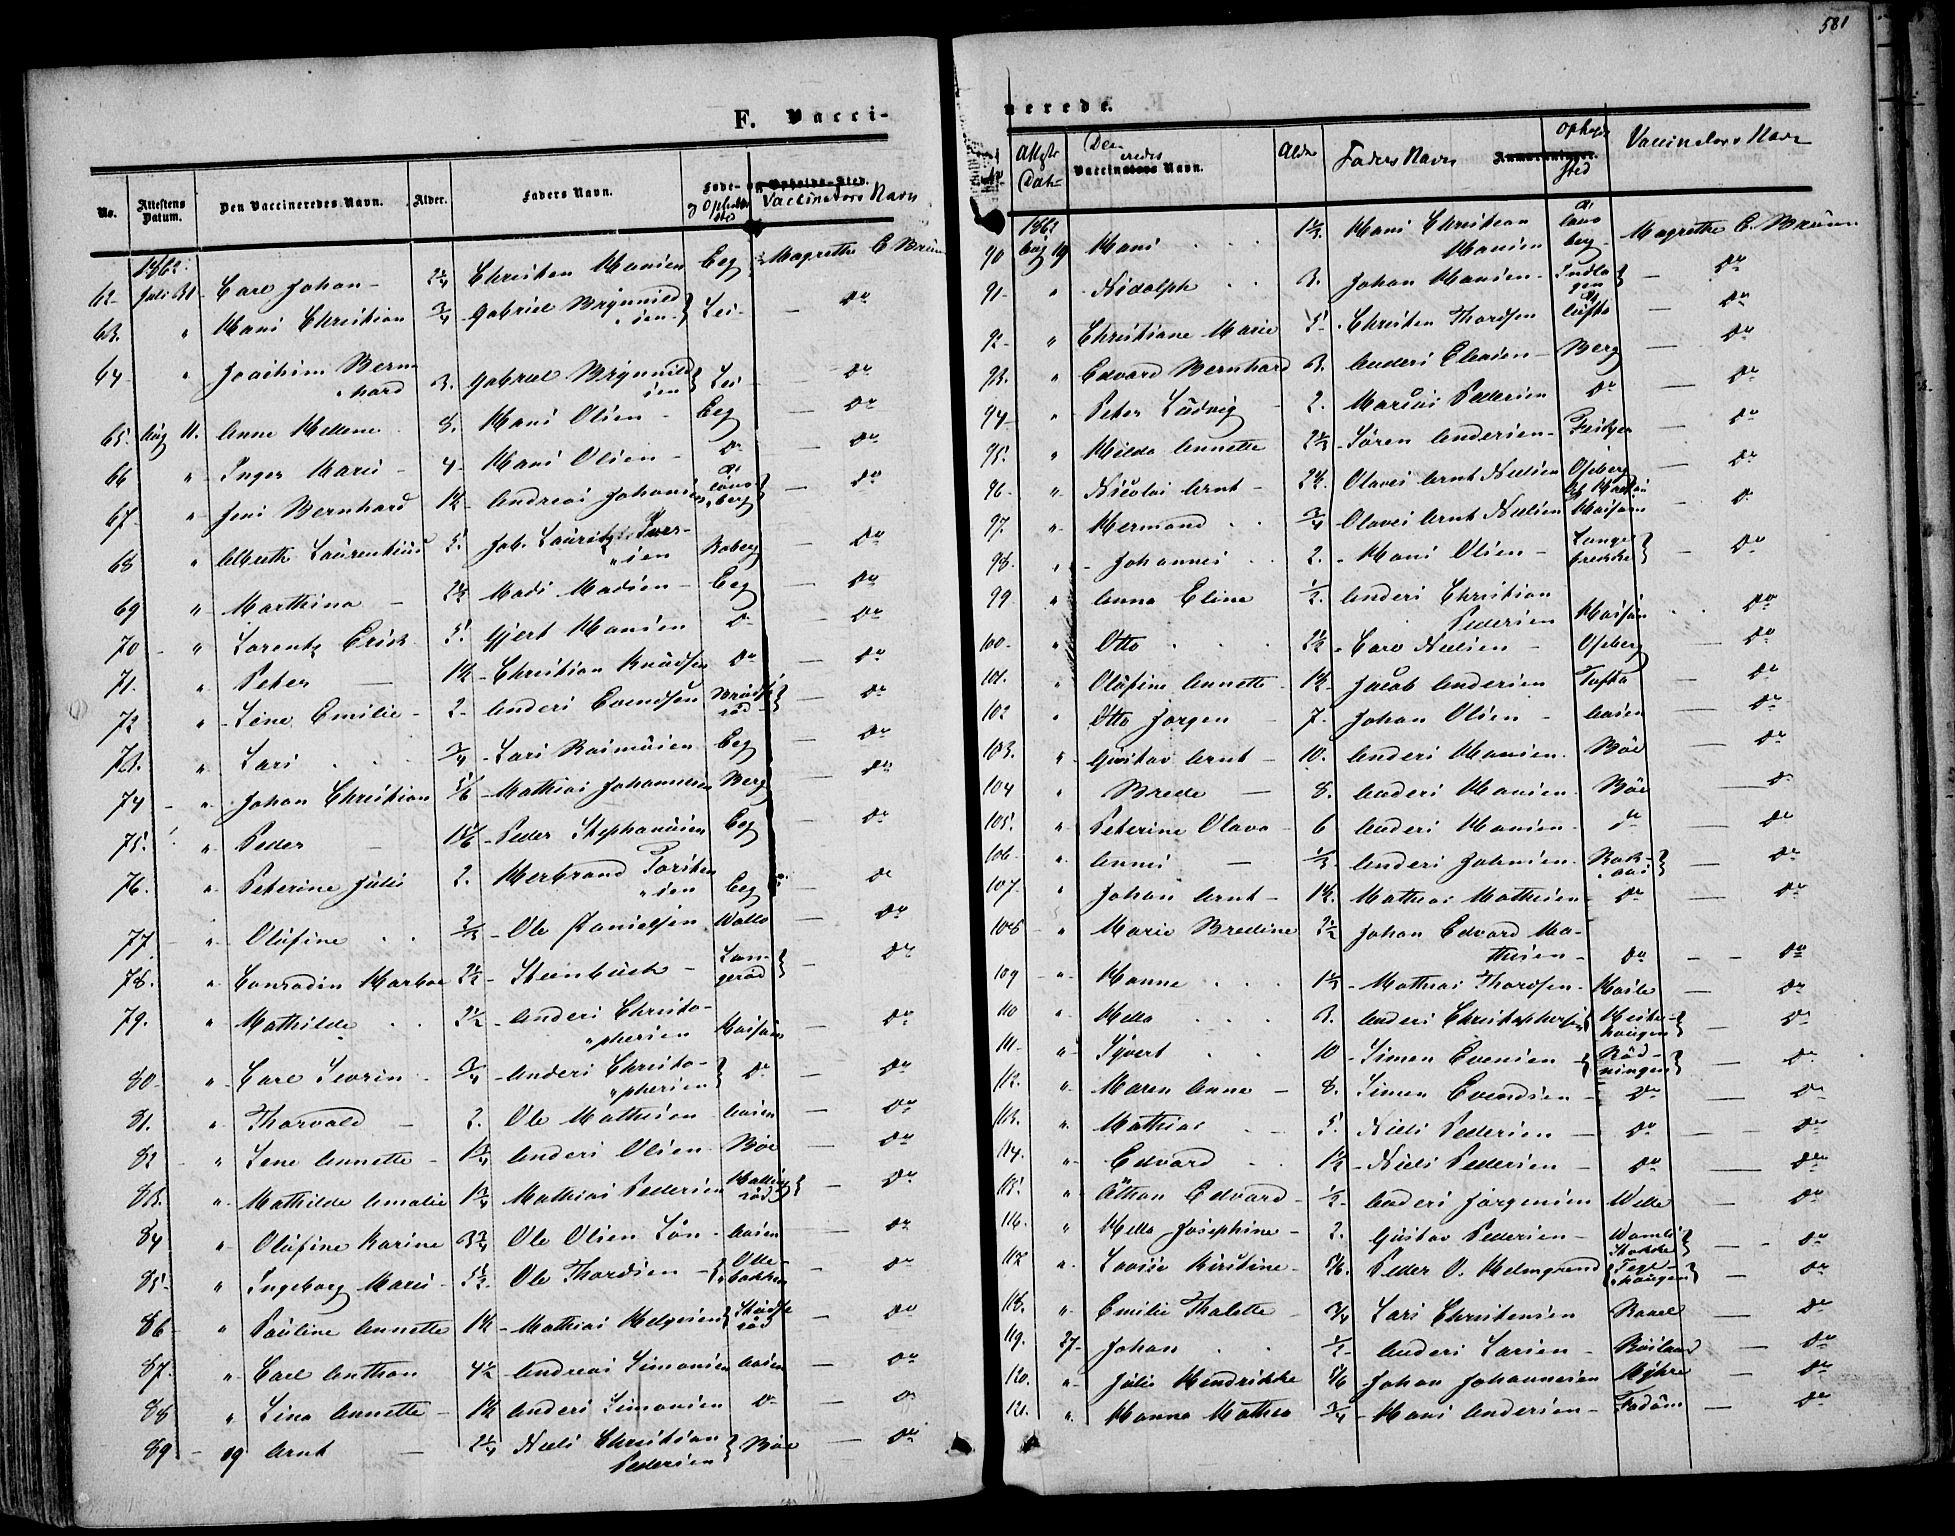 581
F. Vacci-
No. Attestens Datum. Den Vaccineredes Navn. Alder. Faders Navn. Føde- og Opholds-Sted. Vaccinators Navn
1862
62 Juli 31 Carl Johan 2 1/4 Christen Hansen Eeg Magrethe C. Bruun
63. " Hans Christian 3/4 Gabriel Brynnild
sen Lei Do
64 " Joachim Bern
hard 3. Gabriel Brynnild
sen Lei Do
65. Aug 11. Anne Hellene 8. Hans Olsen Eeg Do
66 " Inger Marie 4 Hans Olsen Do Do
67 " Jens Bernhard 1 1/2 Andreas Johansen berg Do
68 " Laurentius 5. Joh. Lauritz Iver-
sen Roberg Do
69 " Marthina Mads Madsen Eeg Do
70 " Lorentz Erick 5. Gjert Hansen Do Do
71. " Peter 1 1/2 Christian Knudsen Do Do
72 " Sine Emilie 2 Anders Evendsen rød Do
73. " Lars 3/4 Lars Rasmusen Eeg Do
74 " Johan Christian 5/6 Mathias Johannesen Berg Do
75. " Peder Peder Stephansen Eeg Do
76. " Peterine Julie 2. Herbrand Torsten
sen Eeg Do
77 " Olufine 2/3 Ole Danielsen Wallø Do
78. " Conradin Marboe 2 1/2 Steinbusk Lan-
gerød Do
79. " Mathilde 2 1/2 Anders Christo-
phersen Do
80 " Carl Severin 3/4 Anders Christo-
phersen Do Do
81. " Thorvald 2. Ole Mathisen Aasen Do
82 " Lene Annette 1 3/4 Anders Olsen Bøe Do
83. " Mathilde Amalie 1 3/4 Mathias Pedersen rød Do
84 " Olufine Karine 3 3/4 Ole Olsen Løn Aasen Do
85. " Ingeborg Marie Ole Thordsen bakken Do
86 " Pauline Annette 1 1/2 Mathias Helgesen rød Do
87. " Carl Anthon 4 1/2 Andreas Simonsen Aasen Do
88 " Lina Annette 1 1/2 Anders Simonsen Do Do
89 19 Arnt 2 1/4 Niels Christian
Pedersen Bøe Do
nerede.
Attest. Dat. Den Vaccineredes Navn. Alder Faders Navn Opholds Sted Vaccinators Navn
1862
90 Aug 19 Hans Hans Christian
Hansen Magrethe C. Bruun
91. " Nidolph 3. Johan Hansen Do
92 " Christiane Marie 5 Christen Thordsen Do
93. " Edvard Bernhard 3. Anders Berg Do
94 " Peter Ludvig 2. Marius Pedersen Do Do
95. " Hilda Annette 2 1/2 Søren Andersen Do
96. " Nicolai Arnt 2 1/2 Olaves Arnt Nielsen Oseberg Do
97. " Hermand 3/4 Olaves Arnt Nielsen Do
98. " Johannes 2. Hans Olsen Lange
brekke Do
99 " Anna Eline 1/2 Anders Christian
Pedersen Do
100. " Otto 2 1/2 Carl Nielsen Oseberg Do
101. " Olufine Annette 1 1/2 Jacob Andersen Tofta Do
102 " Otto Jørgen 7. Johan Olsen Aasen Do
103. " Gustav Arnt 10. Anders Hansen Bøe Do
104 " Brede 8. Anders Hansen Bøe Do
105. " Peterine Olava 6 Anders Hansen Do Do
106. " Annes 1/3 Anders Johnsen Bak-
aas Do
107. " Johan Arnt 1 1/2 Mathias Mathisen Do Do
108 " Marie Bredine 2 1/2 Johan Edvard Ma-
thisen Do Do
109 " Hanne Mathias Thordsen Do
110 " Hella 3. Anders Christophersen
haugen Do
111. " Syvert 10 Simen Evensen Rød-
ningen Do
112. " Maren Anne 8. Simen Evendsen Do Do
113. " Mathias 5. Niels Pedersen Do Do
114. " Edvard 1 1/2 Niels Pedersen Do Do
115. " Othan Edvard 1/2 Anders Jørgensen Welle Do
116. " Hella Josephine 2. Gustav Pedersen Stokke Do
117 " Lovise Kirstine 5/6. Peder O. Holmgrend
haugen Do
118. " Emilie Thalette 3/4 Lars Christensen Do
119. 27 Johan 1/2 Anders Larsen Do
120. " Julie Hendrikke 5/6 Johan Johannesen Myhre Do
121. " Hanna Mathea 3/4 Hans Andersen Fadum Do